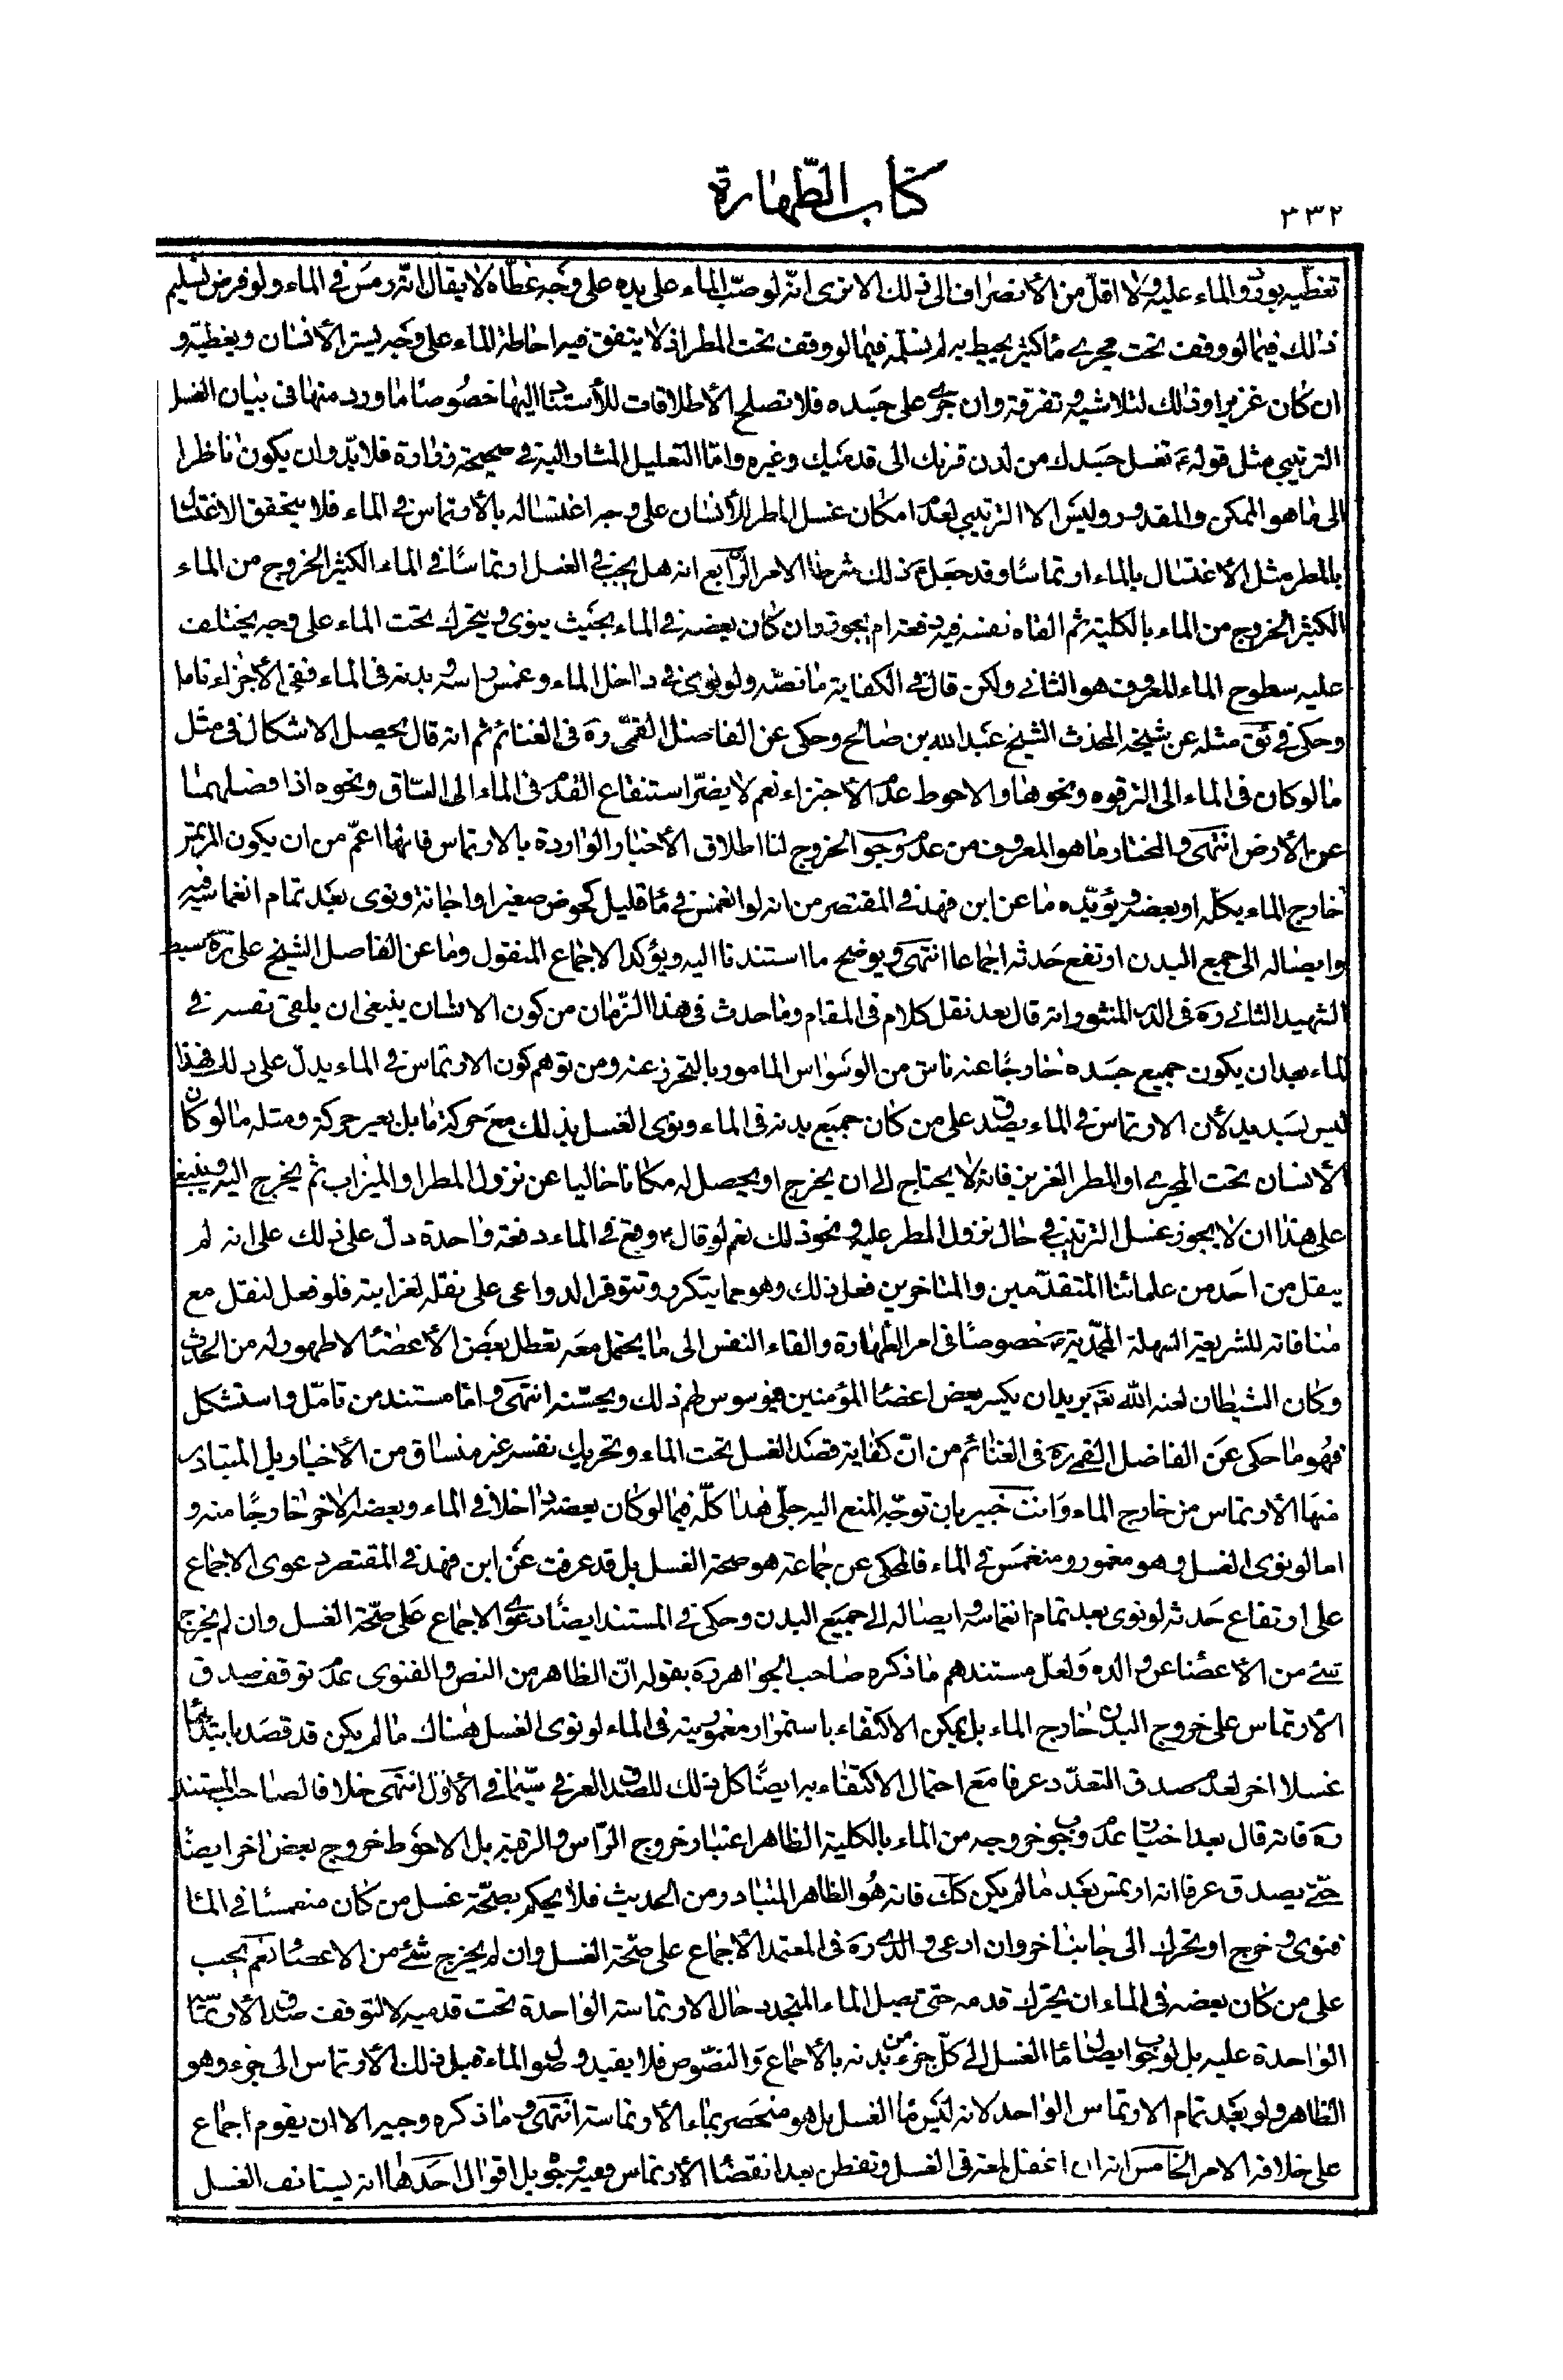 كتاب الطّهارة
٣٣٢
تغطّيه بورود الماء عليه ولا اقلّ من الأنصراف الى ذلك الا ترى انّه لو صبّ الماء على يده على وجه غطّاه لا يقال انّه رمس في الماء ولو فرض تسليم
ذلك فيما لو وقف تحت مجرى ماء كثير يحيط به لم نسلّمه فيما لو وقف تحت المطر اذ لا يتفق فيه احاطة الماء على وجه يستر الأنسان ويغطيه و
ان كان غزيرا وذلك لتلاشيه وتفرقه وان جرى على جسده فلا تصلح الأطلاقات للأستناد اليها خصوصا ما ورد منها في بيان الغسل
الترتيبي مثل قوله ع تغسل جسدك من لدن قرنك الى قدميك وغيره وامّا التعليل المشار اليه في صحيحة زرارة فلا بدّ وان يكون ناظرا
الى ما هو الممكن والمقدور وليس الا الترتيبي لعدم امكان غسل المطر للأنسان على وجه اغتساله بالأرتماس في الماء فلا يتحقق الاغتسال
بالمطر مثل الأغتسال بالماء ارتماسا وقد جعل ع ذلك شرطا الامر الرّابع انه هل يجب في الغسل ارتماسا في الماء الكثير الخروج من الماء
الكثير الخروج من الماء بالكلية ثم القاء نفسه فيه دفعة ام يجوز وان كان بعضه في الماء بحيث ينوى ويتحرك تحت الماء على وجه يختلف
عليه سطوح الماء المعروف هو الثاني ولكن قال في الكفاية ما نصّه ولو نوى في داخل الماء وغمس راسه وبدنه في الماء ففي الأجزاء تامل
وحكى في ئق مثله عن شيخه المحدث الشيخ عبد الله بن صالح وحكى عن الفاضل القمّي ره في الغنائم ثم انه قال يحصل الاشكال في مثل
ما لو كان في الماء الى الترقوه ونحوها والاحوط عدم الأجتزاء نعم لا يضرّ استنقاع القدم في الماء الى السّاق ونحوه اذا فصلهما
عن الأرض انتهى والمختار ما هو المعروف من عدم وجوب الخروج لنا اطلاق الأخبار الواردة بالارتماس فانها اعمّ من ان يكون المرتمس
خارج الماء بكلّه او بعضه ويؤيّده ما عن ابن فهد في المقتصر من انه لو انغمس في ماء قليل كحوض صغير او اجانة ونوى بعد تمام انغماسه فيه
وايصاله الى جميع البدن ارتفع حدثه اجماعا انتهى ويوضح ما استندنا اليه ويؤكد الاجماع المنقول وما عن الفاضل الشيخ على ره سبط
الشهيد الثاني ره في الدر المنثور انه قال بعد نقل كلام في المقام وما حدث في هذا الزّمان من كون الانسان ينبغي ان يلقى نفسه في
الماء بعد ان يكون جميع جسده خارجًا عنه ناش من الوسواس المامور بالتحرز عنه ومن توهم كون الارتماس في الماء يدلّ على ذلك فهذا
ليس بسديد لأن الارتماس في الماء يصدق على من كان جميع بدنه في الماء ونوى الغسل بذلك مع حركة ما بل بغير حركة ومثله ما لو كان
الأنسان تحت المجرى او المطر الغزير فانه لا يحتاج الى ان يخرج او يحصل له مكانا خاليا عن نزول المطر او الميزاب ثم يخرج اليه وينبغي
على هذا ان لا يجوز غسل الترتيب في حال نزول المطر عليه ونحو ذلك نعم لو قال ع وقع في الماء دفعة واحدة دلّ على ذلك على انه لم
ينقل من احد من علمائنا المتقدّمين والمتاخرين فعل ذلك وهو مما يتكرر وتتوفر الدواعى على نقله لغرابته فلو فعل لنقل مع
منافاته للشريعة السهلة المحمّدية ص خصوصًا في امر الطّهارة والقاء النفس الى ما يحتمل معه تعطل بعض الأعضاء لا طهور له من الحدث
وكان الشيطان لعنه الله نعم يريد ان يكسر بعض اعضاء المؤمنين فيوسوس لهم ذلك ويحسّنه انتهى وامّا مستند من تامّل واستشكل
فهُو ما حكى عن الفاضل القمي ره في الغنائم من انّ كفاية قصد الغسل تحت الماء وتحريك نفسه غير منساق من الأخبار بل المتبادر
منها الأرتماس من خارج الماء وانت خبير بان توجّه المنع اليه جلّى هذا كلّه فيما لو كان بعضه داخلا في الماء وبعضه الاخر خارجًا منه و
اما لو نوى الغسل وهو مغمور ومنغمس في الماء فالمحكى عن جماعة هو صحة الغسل بل قد عرفت عن ابن فهد في المقتصر دعوى الاجماع
على ارتفاع حدثه لو نوى بعد تمام انغماسه وايصاله الى جميع البدن وحكى في المستند ايضًا دعوى الاجماع على صحّة الغسل وان لم يخرج
شئ من الأعضاء عن والده ولعلّ مستندهم ما ذكره صاحب الجواهر ره بقوله انّ الظاهر من النص والفتوى عدم توقف صدق
الأرتماس على خروج البدن خارج الماء بل يمكن الاكتفاء باستمرار مغموريته في الماء لو نوى الغسل هناك ما لم يكن قد قصد بابتدائها
غسلا اخر لعدم صدق التعدّد عرفا مع احتمال الاكتفاء به ايضًا كل ذلك للصدق العرفي سيّما في الأوّل انتهى خلافا لصاحب المستند
ره فانه قال بعد اختيار عدم وجوب خروجه من الماء بالكلية الظاهر اعتبار خروج الرّاس والرقبة بل الاحوط خروج بعض اخر ايضًا
حتّى يصدق عرفا انه ارتمس بعد ما لم يكن كك فانه هُو الظاهر المتبادر من الحديث فلا يحكم بصحّة غسل من كان منغمسًا في الماء
فنوى وخرج او تحرك الى جانب اخر وان ادعى والدى ره في المعتمد الأجماع على صحّة الغسل وان لم يخرج شئ من الاعضاء نعم يجب
على من كان بعضه في الماء ان يحرّك قدمه حتى يصل الماء المتجدد حال الارتماسة الواحدة تحت قدميه لا لتوقف صدق الأرتماسة
الواحدة عليه بل لوجوب ايصال ماء الغسل الى كلّ جزء من بدنه بالأجماع والنصّوص فلا يفيد وصول الماء قبل ذلك الأرتماس الى جزء وهو
الظاهر ولو بعد تمام الارتماس الواحد لانه ليس ماء الغسل بل هو منحصر بماء الأرتماسة انتهى وما ذكره وجيه الا ان يقوم اجماع
على خلافه الامر الخامس انه ان اغفل لمعة في الغسل وتفطن بعد انقضاء الأرتماس ففيه وجوه بل اقوال احدها انه يستانف الغسل